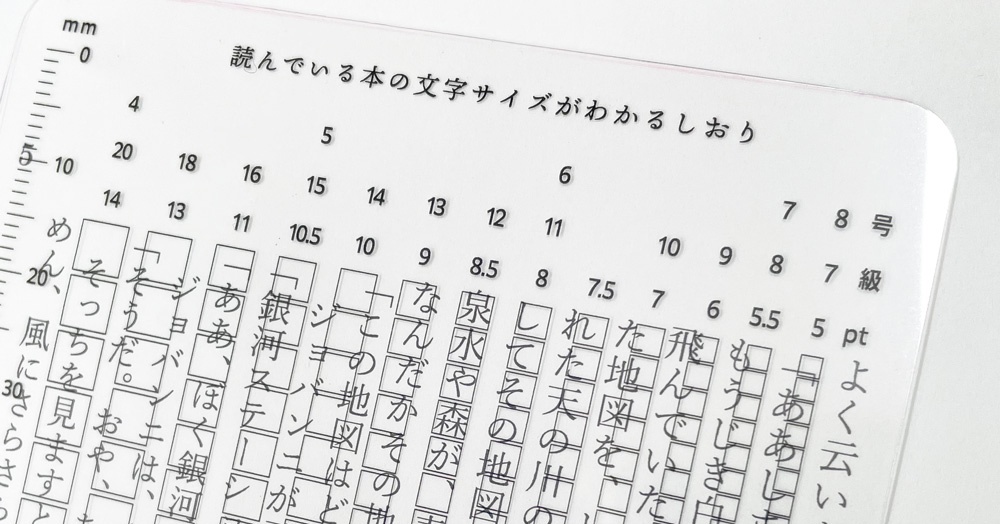 読んでいる本の文字サイズがわかるしおり
mm
0
5
10
20
30
4 5 6 7 8 号
20 18 16 15 14 13 12 11 10 9 8 7 級
14 13 11 10.5 10 9 8.5 8 7.5 7 6 5.5 5 pt
よく云い
「ああし
もうじき白
飛んでいた
た地図を、
れた天の川の
してその地図
泉水や森が、
なんだかその地
「この地図はど
ジョバンニが
「銀河ステーシ
「ああ、ぼく銀河
ジョバンニは、
「そうだ。おや、
そっちを見ますと
めん、風にさらさら